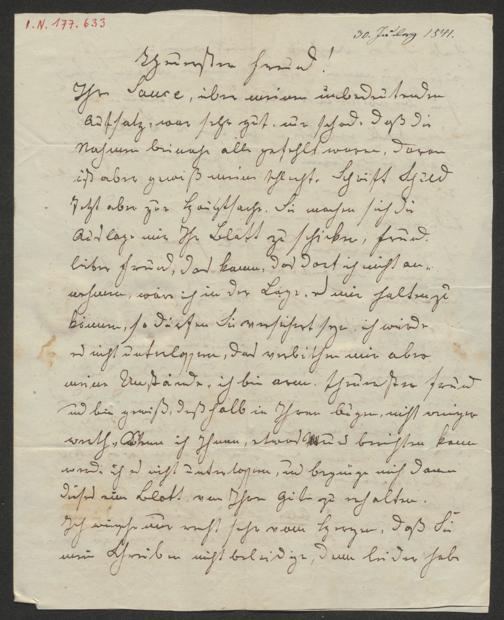 I.N. 177.633
30. 1841.
Theuerster Freund!
Ihr Sauce, über meinen unbedeutenden
Aufsatz, war sehr gut. nur schad. daß die
Nahmen beinahe alle gefehlt waren, daran
ist aber gewiß meine schlecht. Schrift Schuld
Jetzt aber zur Hauptsache. Sie machen sich die
Auslage mir Ihr Blatt zu schicken, freund.
lieber Freund, das kann, das darf ich nicht an-
nehmen, wäre ich in der Lage, es mir halten zu
können, so dürfen Sie versichert seyn, ich würde
es nicht unterlassen, das verbiethen mir aber
meine Umstände, ich bin arm. theuerster Freund
und bin gewiß, deßhalb in Ihren Augen, nicht weniger
werth, Wenn ich Ihnen, etwas berichten kann
werde ich es nicht unterlassen, und begnüge mich dann
dieses ein Blatt von Ihrer Güte zu erhalten.
Ich wünsche nur recht sehr vom Herzen, daß Sie
mein Schreiben nicht beleidige, denn leider habe